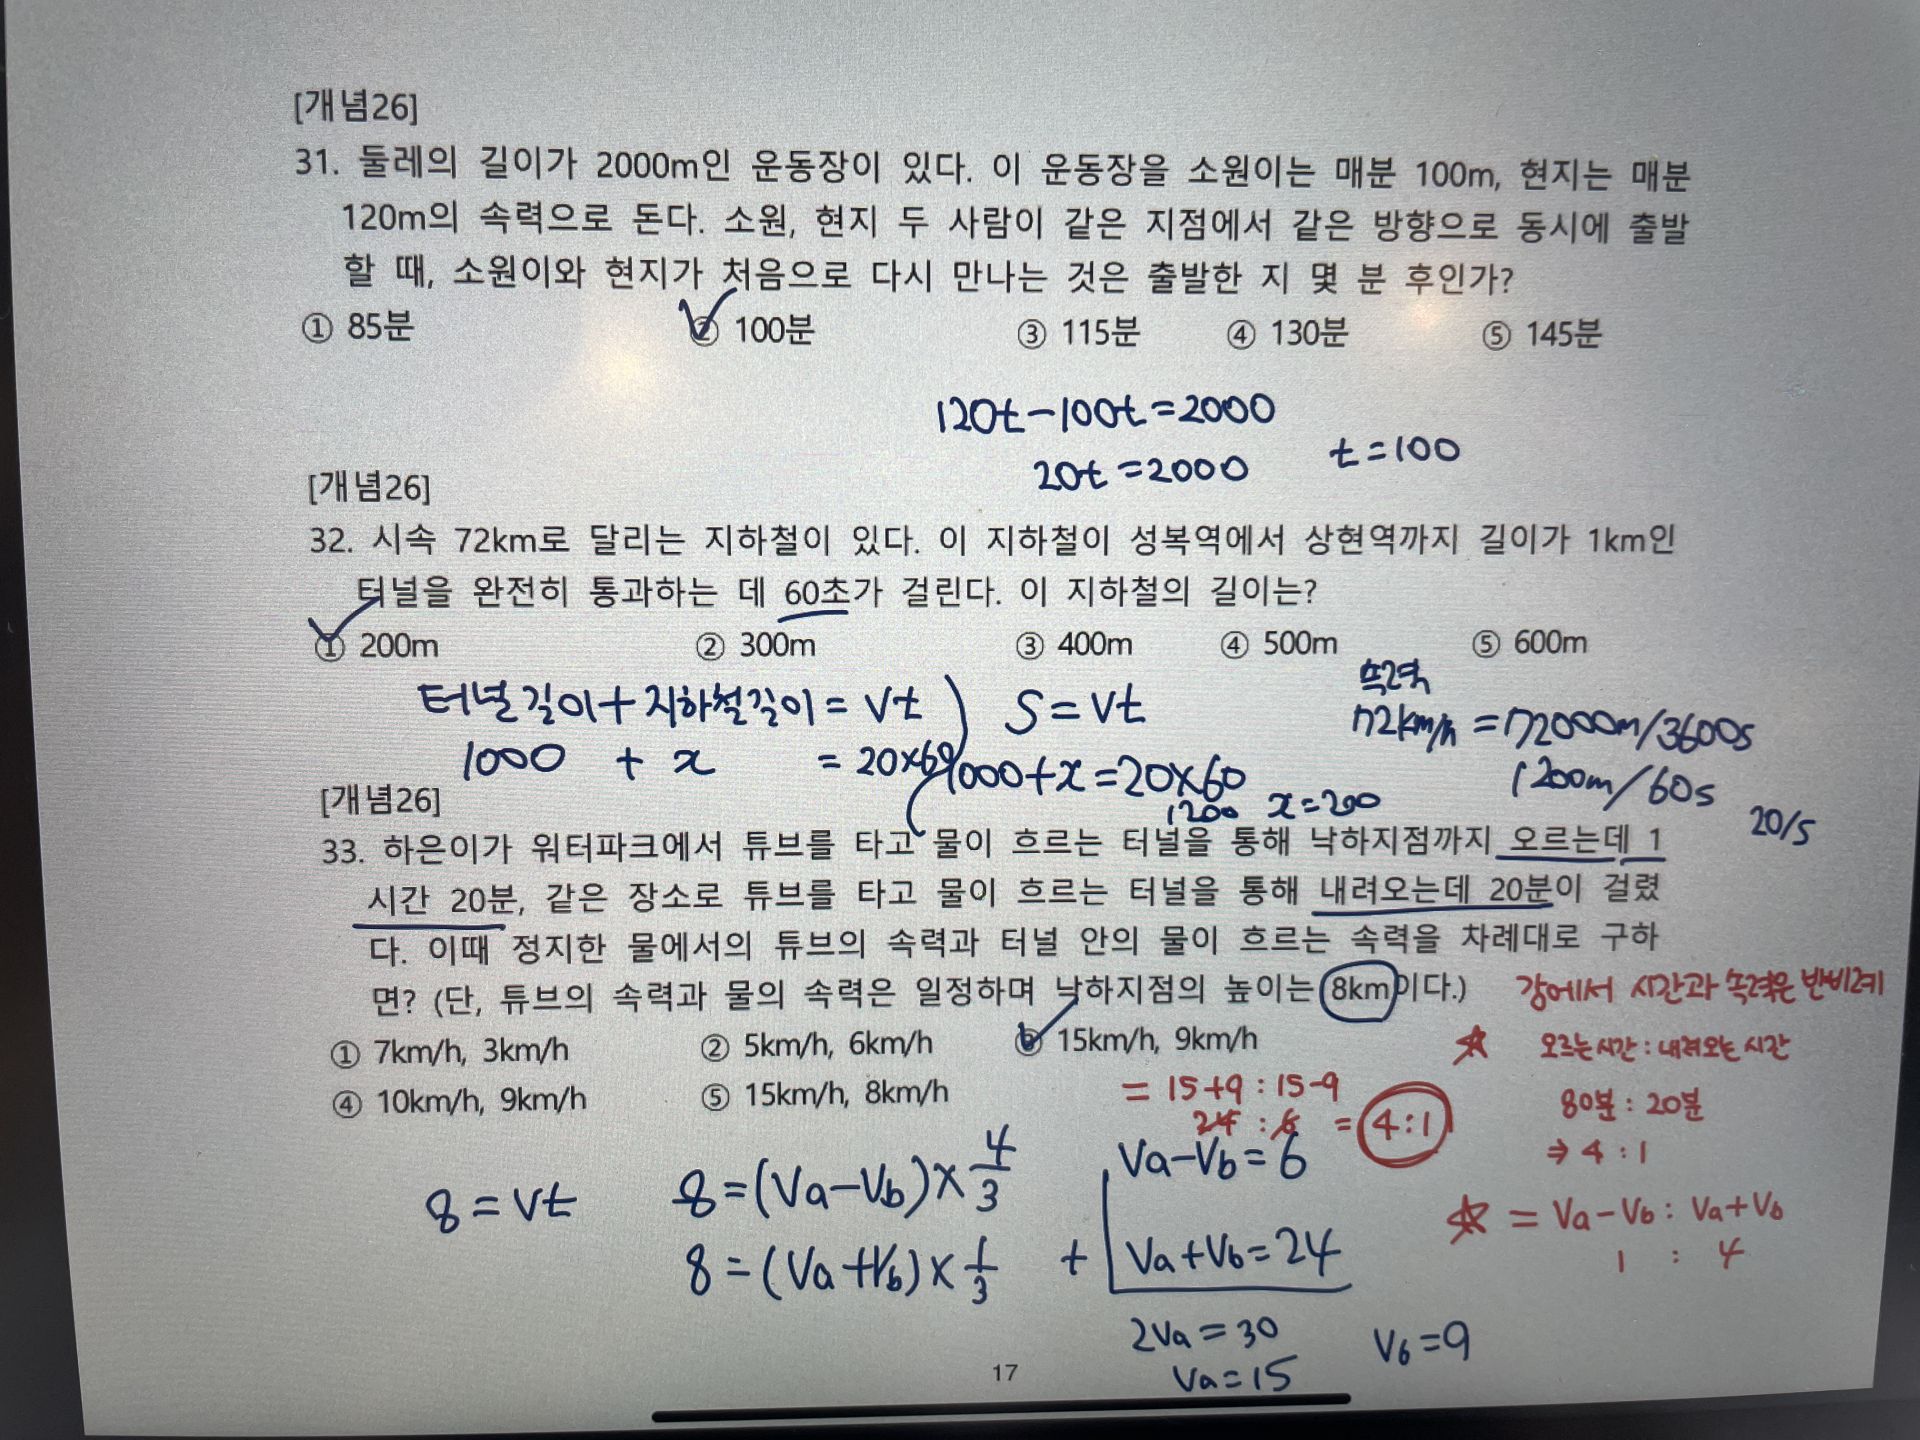 [개념26]
31. 둘레의 길이가 2000m인 운동장이 있다. 이 운동장을 소원이는 매분 100m, 현지는 매분
120m의 속력으로 돈다. 소원, 현지 두 사람이 같은 지점에서 같은 방향으로 동시에 출발
할 때, 소원이와 현지가 처음으로 다시 만나는 것은 출발한 지 몇 분 후인가?
① 85분 ② 100분 ③ 115분 ④ 130분 ⑤ 145분
120t-100t=2000
20t=2000 t=100
[개념26]
32. 시속 72km로 달리는 지하철이 있다. 이 지하철이 성복역에서 상현역까지 길이가 1km인
터널을 완전히 통과하는 데 60초가 걸린다. 이 지하철의 길이는?
① 200m ② 300m ③ 400m ④ 500m ⑤ 600m
터널길이+지하철길이=vt S=vt
1000 + x =20×60
1000+x=20×60
1200 x=200
속력
72km/h=72000m/3600s
1200m/60s
20/s
[개념26]
33. 하은이가 워터파크에서 튜브를 타고 물이 흐르는 터널을 통해 낙하지점까지 오르는데 1
시간 20분, 같은 장소로 튜브를 타고 물이 흐르는 터널을 통해 내려오는데 20분이 걸렸
다. 이때 정지한 물에서의 튜브의 속력과 터널 안의 물이 흐르는 속력을 차례대로 구하
면? (단, 튜브의 속력과 물의 속력은 일정하며 낙하지점의 높이는 8km이다.)
① 7km/h, 3km/h ② 5km/h, 6km/h ③ 15km/h, 9km/h
④ 10km/h, 9km/h ⑤ 15km/h, 8km/h
강에서 시간과 속력은 반비례
☆ 오르는시간:내려오는시간
80분:20분
⇒ 4:1
☆ = Va-Vb: Va+Vb
1 : 4
= 15+9:15-9
24:6 = 4:1
8=vt
8=(Va-Vb)×4/3
8=(Va+Vb)×1/3
Va-Vb=6
+ Va+Vb=24
2Va=30
Va=15
Vb=9
17